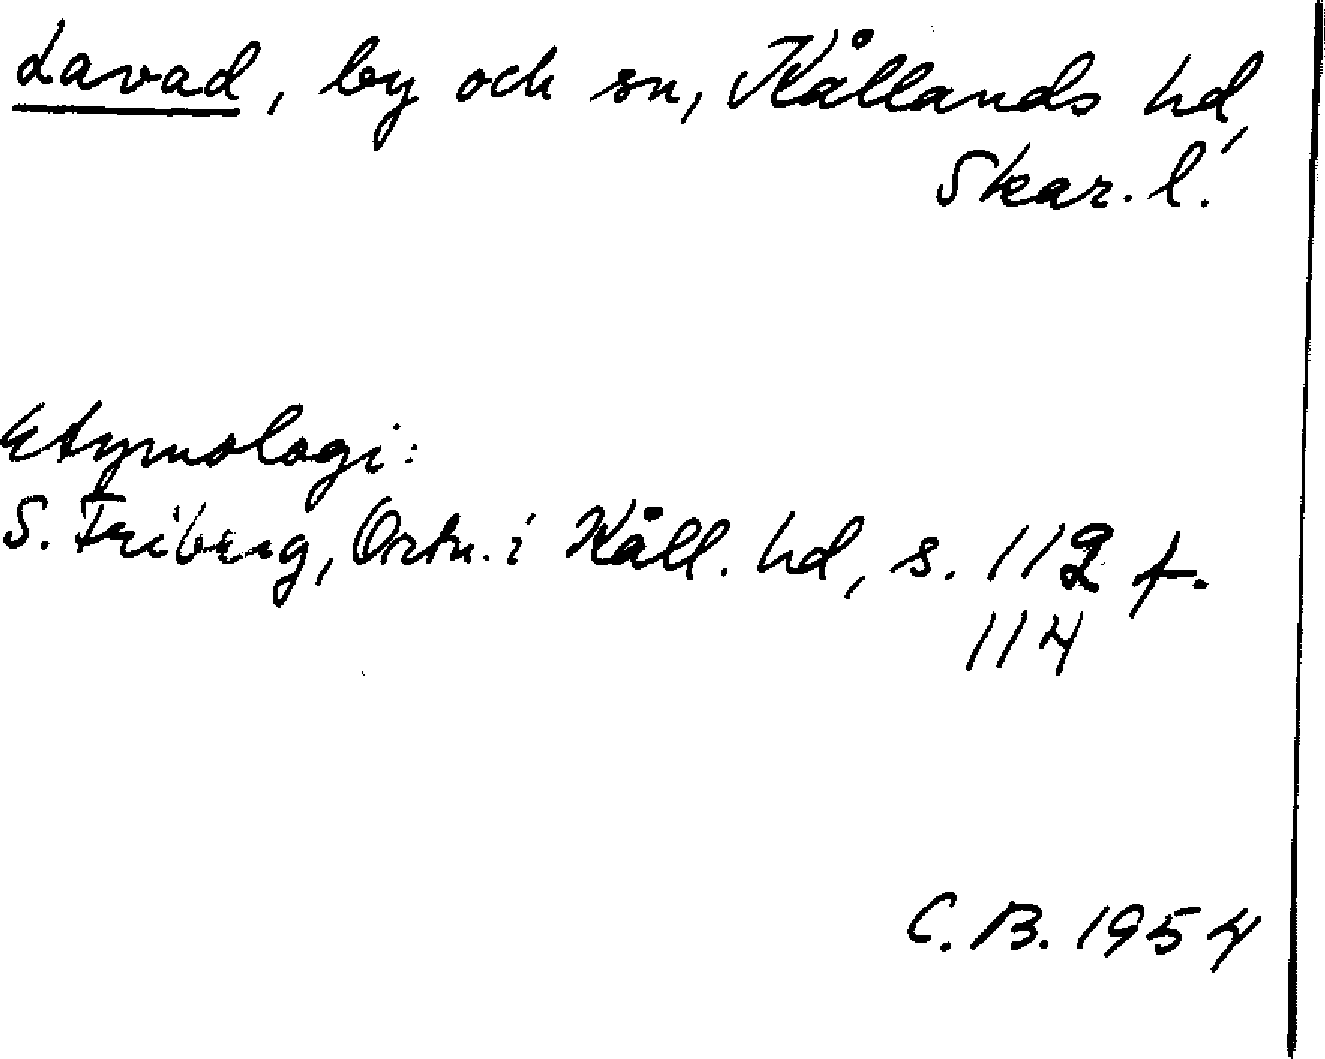 Lavad, by och sn, Kållands hd,
Skar. l.
Etymologi:
S. Friberg, Ortn. i Kåll. hd, s. 112 f.
114
C. B. 1954